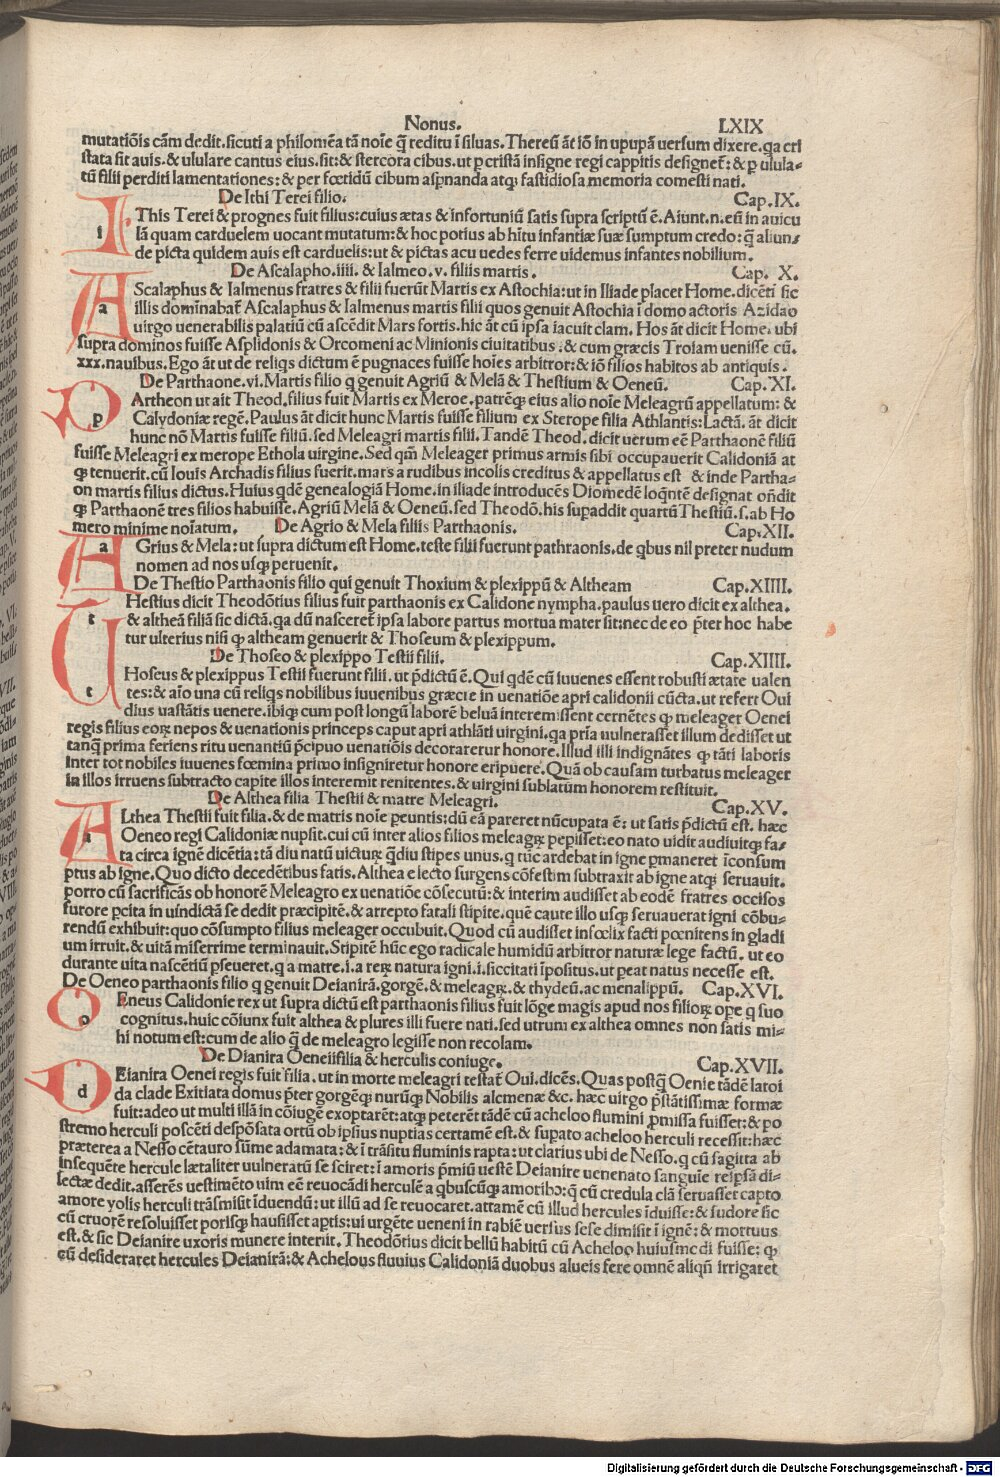 Nonus. LXIX
mutatiōis cām dedit.sicuti a philomēa tā noīe q̄ reditu ī siluas.Thereū āt iō in upupā uersum dixere.qa cri
stata sit auis.& ululare cantus eius.sit:& stercora cibus.ut p cristā insigne regi cappitis designet̄: & p ulula-
tū filii perditi lamentationes: & per fœtidū cibum aspnanda atqꝫ fastidiosa memoria comesti nati.
De Ithi Terei filio. Cap.IX.
i THis Terei & prognes fuit filius:cuius ætas & infortuniū satis supra scriptū ē.Aiunt.n.eū in auicu
lā quam carduelem uocant mutatum:& hoc potius ab hītu infantiæ suæ sumptum credo:q̄ aliun-
de picta quidem auis est carduelis:ut & pictas acu uedes ferre uidemus infantes nobilium.
De Ascalapho.iiii. & Ialmeo.v. filiis martis. Cap. X.
a Scalaphus & Ialmenus fratres & filii fuerūt Martis ex Astochia:ut in Iliade placet Home.dicēti sic
illis domīnabat̄ Ascalaphus & Ialmenus martis filii quos genuit Astochia ī domo actoris Azidao
uirgo uenerabilis palatiū cū ascēdit Mars fortis.hic āt cū ipsa iacuit clam. Hos āt dicit Home. ubi
supra dominos fuisse Asplidonis & Orcomeni ac Minionis ciuitatibus.& cum græcis Troiam uenisse cū.
xxx.nauibus.Ego āt ut de reliqs dictum ē pugnaces fuisse hoīes arbitror:& iō filios habitos ab antiquis.
De Parthaone.vi.Martis filio q genuit Agriū & Melā & Thestium & Oeneū. Cap.XI.
p Artheon ut ait Theod.filius fuit Martis ex Meroe.patrēqꝫ eius alio noīe Meleagrū appellatum: &
Calydoniæ regē.Paulus āt dicit hunc Martis fuisse filium ex Sterope filia Athlantis:Lactā. āt dicit
hunc nō Martis fuisse filiū.sed Meleagri martis filii.Tandē Theod.dicit uerum eē Parthaonē filiū
fuisse Meleagri ex merope Ethola uirgine.Sed qm̄ Meleager primus armis sibi occupauerit Calidoniā at
qꝫ tenuerit.cū Iouis Archadis filius fuerit.mars a rudibus incolis creditus & appellatus est & inde Partha-
on martis filius dictus.Huius qdē genealogiā Home.in iliade introducēs Diomedē loqntē designat on̄dit
qꝫ Parthaonē tres filios habuisse.Agriū Melā & Oeneū.sed Theodō.his supaddit quartū Thestiū.s.ab Ho
mero minime noīatum. De Agrio & Mela filiis Parthaonis. Cap.XII.
a Grius & Mela:ut supra dictum est Home.teste filii fuerunt pathraonis.de qbus nil preter nudum
nomen ad nos usqꝫ peruenit.
De Thestio Parthaonis filio qui genuit Thoxium & plexippū & Altheam Cap.XIIII.
t Hestius dicit Theodōtius filius fuit parthaonis ex Calidone nympha.paulus uero dicit ex althea.
& altheā filiā sic dictā.qa dū nasceret̄ ipsa labore partus mortua mater sit:nec de eo p̄ter hoc habe
tur ulterius nisi qꝫ altheam genuerit & Thoseum & plexippum.
De Thoseo & plexippo Testii filii. Cap.XIIII.
t Hoseus & plexippus Testii fuerunt filii.ut p̄dictū ē.Qui qdē cū iuuenes essent robusti ætate ualen
tes:& aīo una cū reliqs nobilibus iuuenibus græciæ in uenatiōe apri calidonii cūcta.ut refert Oui
dius uastātis uenere.ibiqꝫ cum post longū laborē beluā interemissent cernētes qꝫ meleager Oenei
regis filius eoꝝ nepos & uenationis princeps caput apri athlāti uirgini.qa pria uulnerasset illum dedisset ut
tanq̄ prima feriens ritu uenantiū p̄cipuo uenatiōis decoraretur honore.Illud illi indignātes qꝫ tāti laboris
inter tot nobiles iuuenes fœmina primo insigniretur honore eripuere.Quā ob causam turbatus meleager
in illos irruens subtracto capite illos interemit renitentes.& uirgini sublatum honorem restituit.
De Althea filia Thestii & matre Meleagri. Cap.XV.
a Lthea Thestii fuit filia.& de matris noīe peuntis:dū eā pareret nūcupata ē: ut satis p̄dictū est. hæc
Oeneo regi Calidoniæ nupsit.cui cū inter alios filios meleagꝝ pepisset:eo nato uidit audiuitqꝫ fa-
ta circa ignē dicētia:tā diu natū uictuꝝ q̄diu stipes unus.q tūc ardebat in igne pmaneret īconsum
ptus ab igne.Quo dicto decedētibus fatis.Althea e lecto surgens cōfestim subtraxit ab igne atqꝫ seruauit.
porro cū sacrificās ob honorē Meleagro ex uenatiōe cōsecutū:& interim audisset ab eodē fratres occisos
furore pcita in uīndictā se dedit præcipitē.& arrepto fatali stipite.quē caute illo usqꝫ seruauerat igni cōbu-
rendū exhibuit:quo cōsumpto filius meleager occubuit.Quod cū audisset infœlix facti pœnitens in gladi
um irruit.& uitā miserrime terminauit.Stipitē hūc ego radicale humidū arbitror naturæ lege factū. ut eo
durante uita nascētiū pseueret.q a matre.i.a reꝝ natura igni.i.siccitati īpositus.ut peat natus necesse est.
De Oeneo parthaonis filio q genuit Deianirā.gorgē.& meleagꝝ.& thydeū.ac menalippū. Cap.XVI.
o Eneus Calidonie rex ut supra dictū est parthaonis filius fuit lōge magis apud nos filioꝝ ope q suo
cognitus.huic cōiunx fuit althea & plures illi fuere nati.sed utrum ex althea omnes non satis mi-
hi notum est:cum de alio q̄ de meleagro legisse non recolam.
De Dianira Oeneiifilia & herculis coniuge. Cap.XVII.
d Eianira Oenei regis fuit filia.ut in morte meleagri testat̄ Oui.dicēs.Quas postq̄ Oenie tādē latoi
da clade Exitiata domus p̄ter gorgēqꝫ nurūqꝫ Nobilis alcmenæ &c. hæc uirgo p̄stātissimæ formæ
fuit:adeo ut multi illā in cōiugē exoptarēt:atqꝫ peterēt tādē cū acheloo flumini pmissa fuisset:& po
stremo herculi poscēti despōsata ortū ob ipsius nuptias certamē est.& supato acheloo herculi recessit:hæc
præterea a Nesso cētauro sūme adamata:& ī trāsitu fluminis rapta:ut clarius ubi de Nesso.q cū sagitta ab
insequēte hercule lætaliter uulneratū se sciret:ī amoris p̄miū uestē Deianire uenenato sanguīe reipsā di-
lectæ dedit.asserēs uestimēto uim eē reuocādi herculē a qbuscūqꝫ amoribꝰ:q̄ cū credula clā seruasset capto
amore yolis herculi trāsmisit īduendū:ut illū ad se reuocaret.attamē cū illud hercules īduisse:& sudore sic
cū cruorē resoluisset porisqꝫ hausisset aptis:ui urgēte ueneni in rabiē uersus sese dimisit ī ignē:& mortuus
est.& sic Deianire uxoris munere interiit.Theodōtius dicit bellū habitū cū Acheloo huiusmodi fuisse: qꝫ
cū desideraret hercules Deianirā:& Achelous fluuius Calidoniā duobus alueis fere omnē aliqn̄ irrigaret
Digitalisierung gefördert durch die Deutsche Forschungsgemeinschaft - DFG